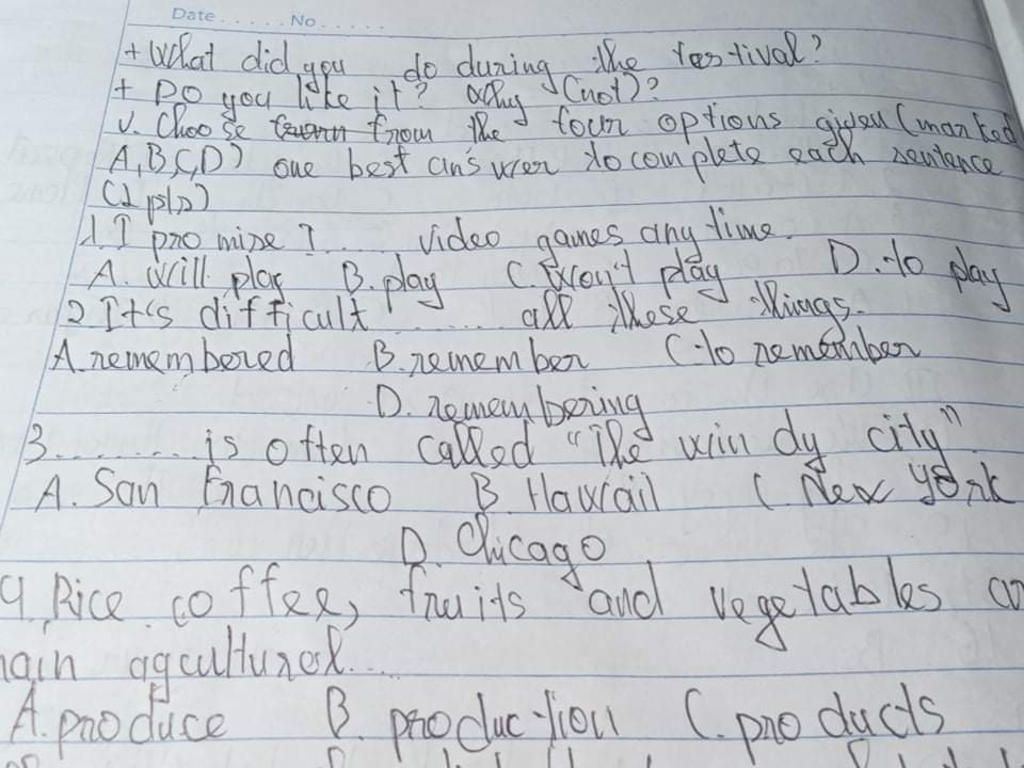 Date ...... No ......
+ What did you do during the festival?
+ Do you like it? Why (not)?
V. Choose from the four options given (marked
A, B, C, D) one best answer to complete each sentence
(2 pts)
1. I promise I .... video games any time.
A. will play B. play C. won't play D. to play
2. It's difficult ........ all these things.
A. remembered B. remember C. to remember
D. remembering
3. ......... is often called "the windy city"
A. San Francisco B. Hawaii C. New York
D. Chicago
4. Rice, coffee, fruits and vegetables
main agcultural....
A. produce B. production C. products